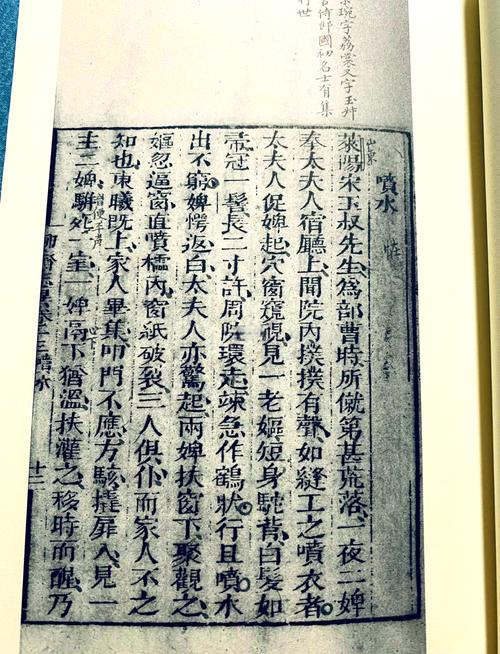 宋琬字荔裳又字玉叔
侍郎國初名士有集
行世
噴水
山東
萊陽宋玉叔先生為部曹時所僦第甚荒落一夜二婢
奉太夫人宿廳上聞院內撲撲有聲如縫工之噴衣者
太夫人促婢起穴窗窺視見一老嫗短身駝背白髮如
帚冠一髻長二寸許周院環走竦急作鶴狀行且噴水
出不窮婢愕返白太夫人亦驚起兩婢扶窗下聚觀之
嫗忽逼窗直噴櫺內窗紙破裂三人俱仆而家人不之
知也東曦既上家人畢集叩門不應方駭撬扉入見一
主二婢駢死一室一婢鬲下猶溫扶灌之移時而醒乃